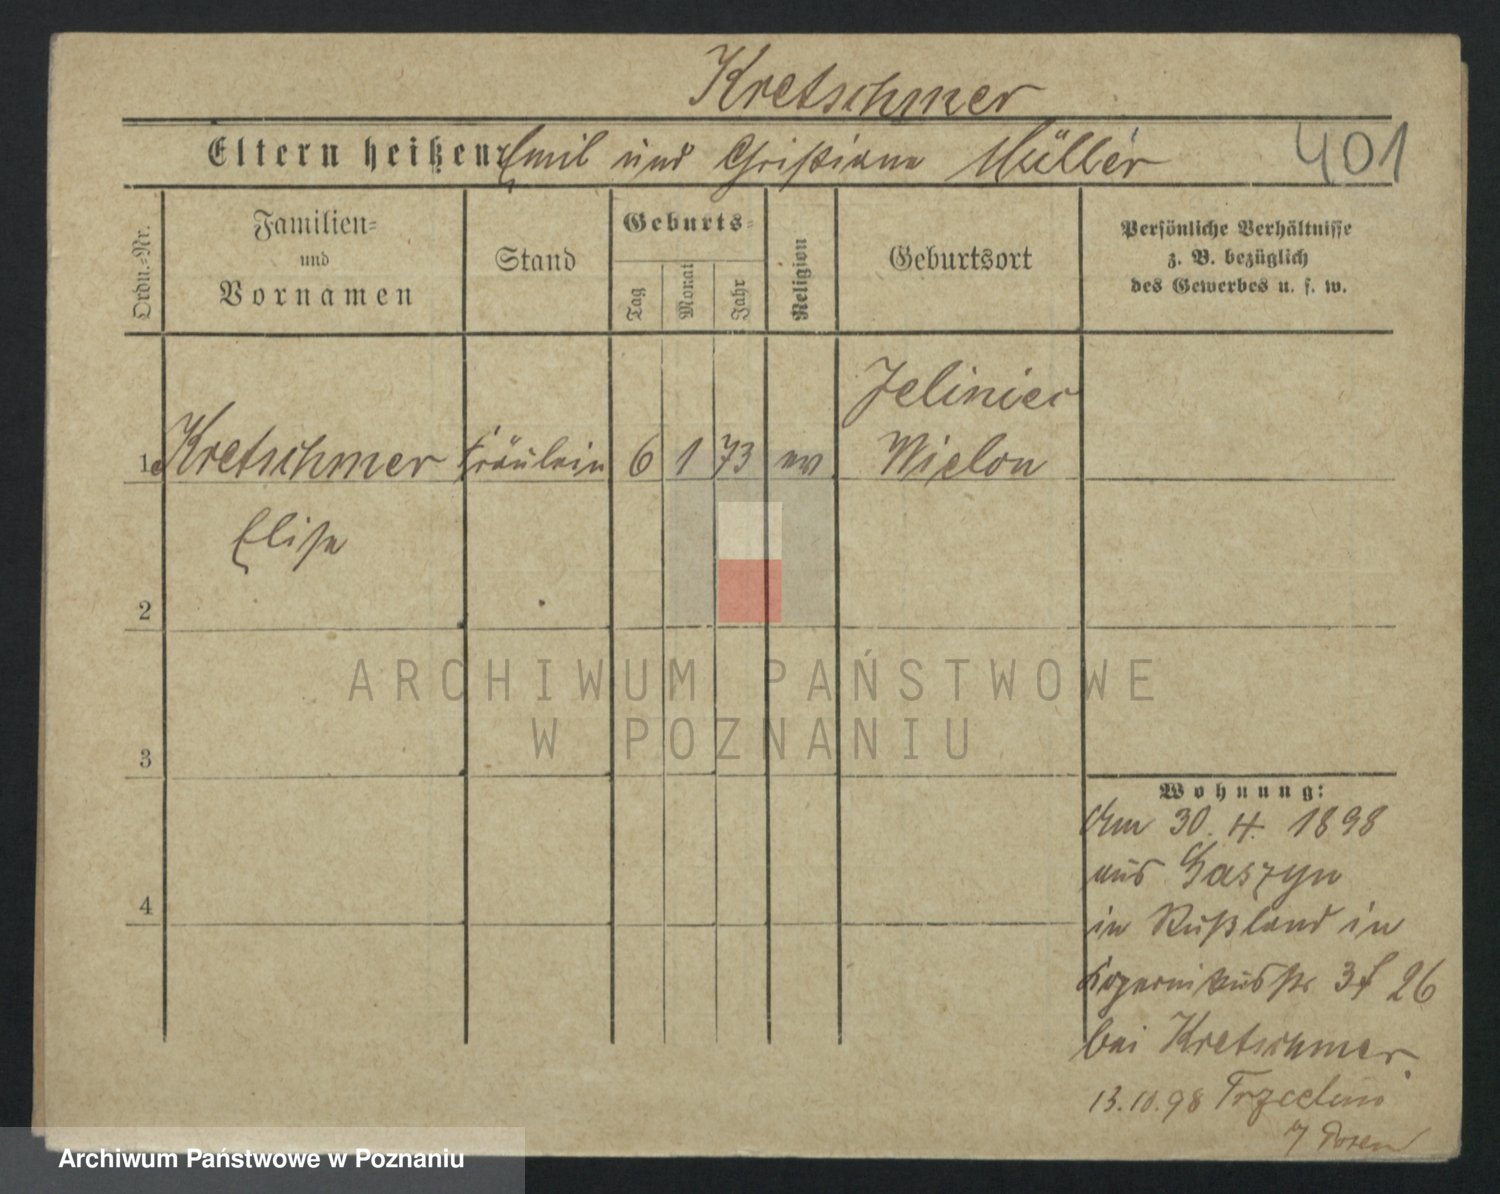 Kretschmer
Eltern heißen: Emil und Christiane Müller
401
Ordn.-Nr.
Familien=
und
Vornamen
Stand
Geburts=
Tag
Monat
Jahr
Religion
Geburtsort
Persönliche Verhältnisse
z. B. bezüglich
des Gewerbes u. s. w.
Jelinier
1 Kretschmer Fräulein 6 1 73 ev Wielon
Elise
2
3
4
Wohnung:
Am 30. 4. 1898
aus Gaszyn
in Rußland in
Kopernikusstr 3
26
bei Kretschmer.
13.10.98
Posen
ARCHIWUM PAŃSTWOWE
W POZNANIU
Archiwum Państwowe w Poznaniu